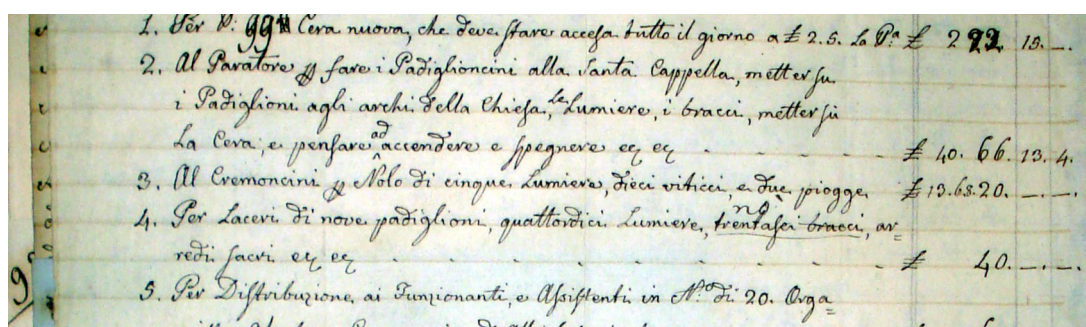 1. Per P: 99 ℔ Cera nuova, che deve stare accesa tutto il giorno a £ 2. 5. La P.a £ 222. 15. —.
2. Al Paratore p fare i Padiglioncini alla Santa Cappella, metter su
i Padiglioni agli archi della Chiesa, le Lumiere, i bracci, metter sù
La Cera, e pensare ad accendere e spegnere ec̨ ec̨ - - - - £ 40. 66. 13. 4.
3. Al Cremoncini p Nolo di cinque Lumiere, dieci viticci, e due piogge £ 13.68.20. —.—.
4. Per Laceri di nove padiglioni, quattordici Lumiere, no trentasei bracci, ar=
redi sacri ec̨ ec̨ - - - - - - - £ 40. —.—.
5. Per Distribuzione ai Funzionanti, e Assistenti in N.o di 20. Orga=